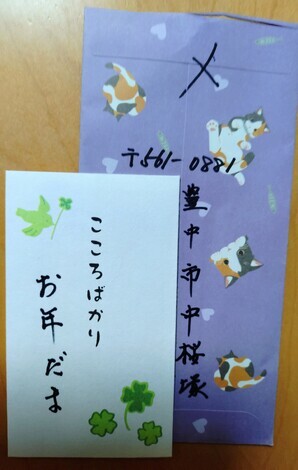 〆
〒561-0881
豊中市中桜塚
こころばかり
お年だま